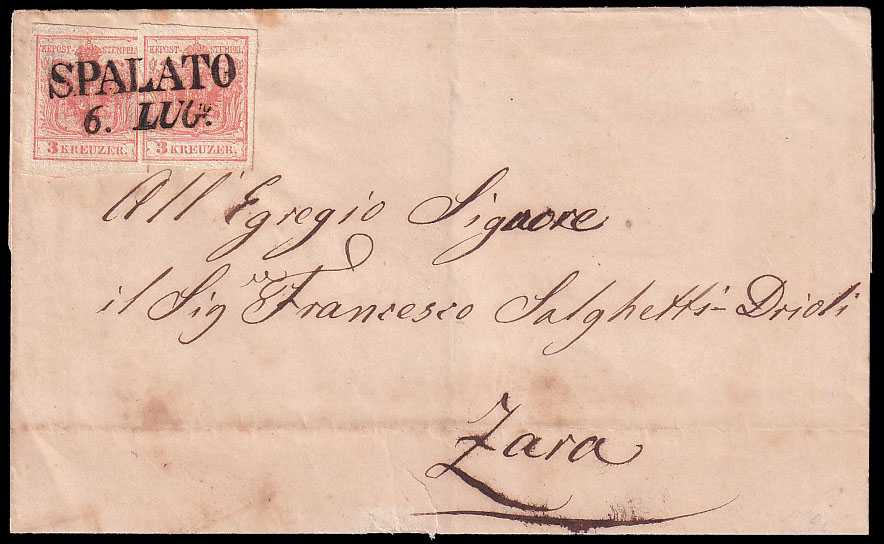 KKPOST-STEMPEL KKPOST-STEMPEL
SPALATO
6. LUG.º
3 KREUZER. 3 KREUZER.
All' Egregio Signore
il Sigre Francesco Salghetti-Drioli
Zara